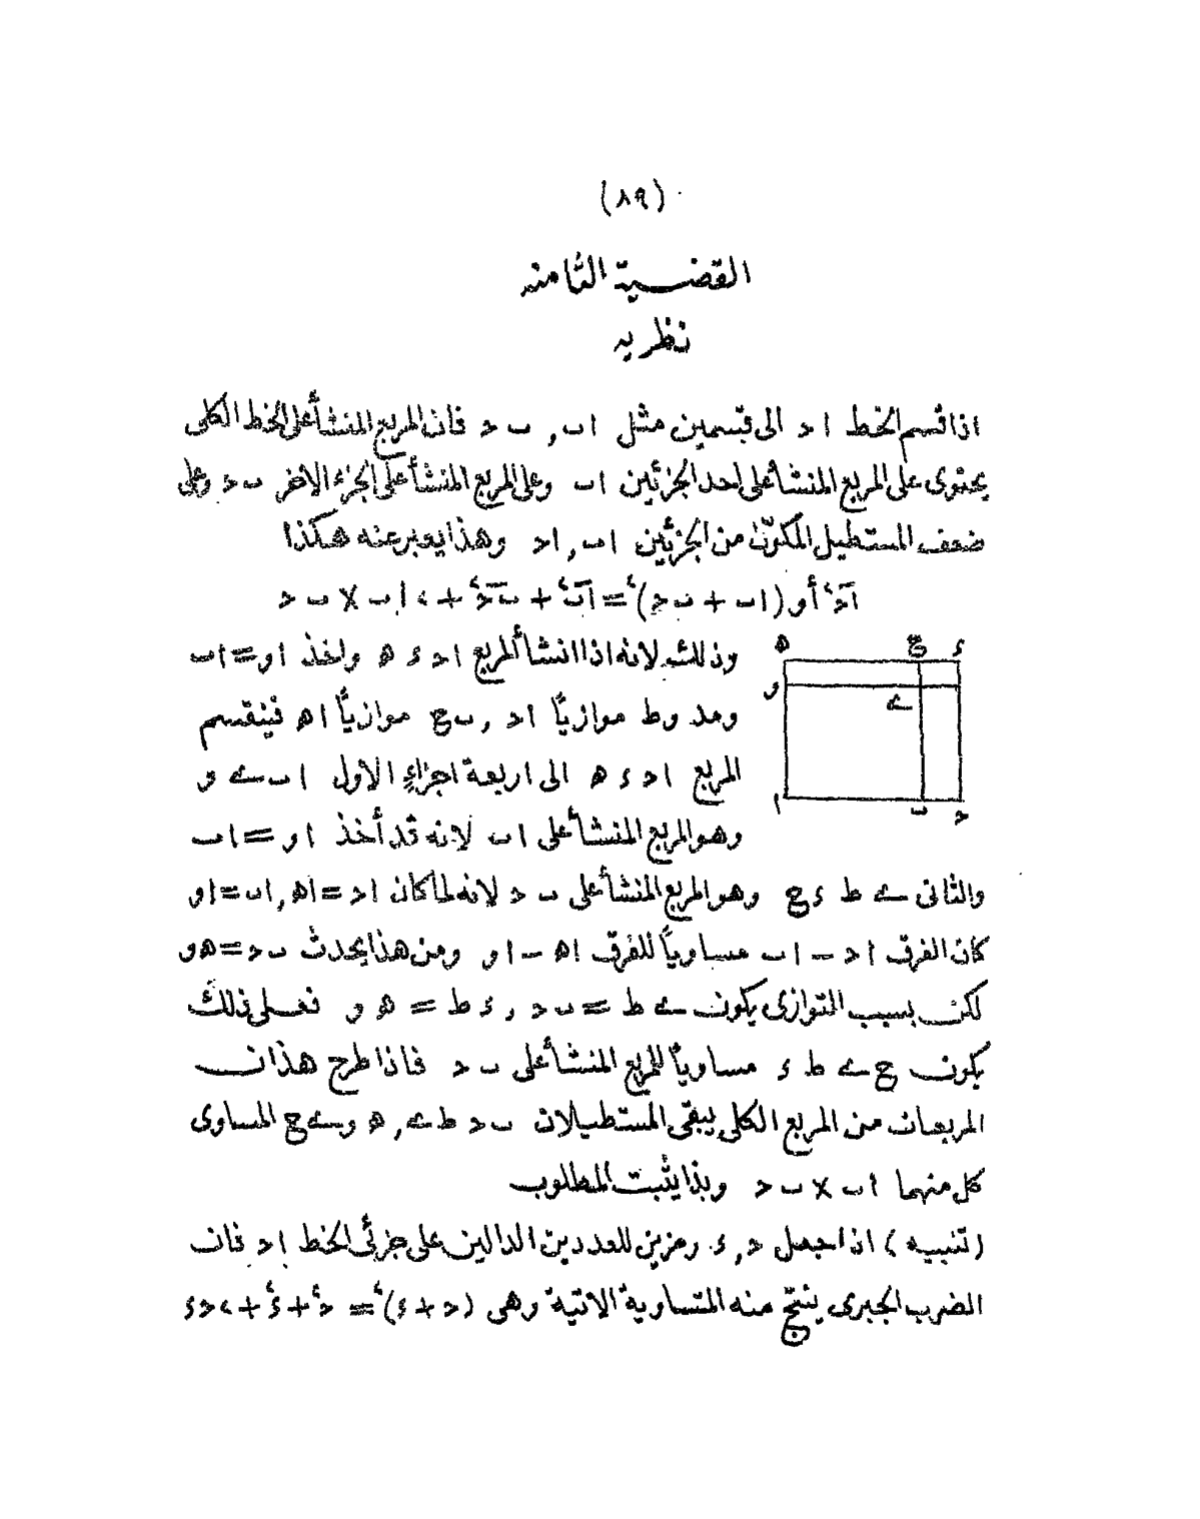 (٨٩)
القضية الثامنه
نظريه
اذا قسم الخط ا د الى قسمين مثل ا ب , ب د فان المربع المنشأ على الخط الكلى
يحتوى على المربع المنشأ على احد الجزئين ا ب وعلى المربع المنشأ على الجزء الاخر ب د وعلى
ضعف المستطيل المكوّن من الجزئين ا ب , ا د وهذا يعبر عنه هكذا
ا د٢ أو (ا ب + ب د)٢ = ا ب٢ + ب د٢ + ٢ ا ب × ب د
وذلك لانه اذا انشأ المربع ا د ء ه واخذ ا و = ا ب
ومد و ط موازيًا ا د , ب ح موازيًا ا ه فينقسم
المربع ا د ء ه الى اربعة اجزاءٍ الاول ا ب ے و
وهو المربع المنشأ على ا ب لانه قد أخذ ا و = ا ب
ه ح ء
و ے
ا ب د
والثانى ے ط ء ح وهو المربع المنشأ على ب د لانه لما كان ا د = ا ه , ا ب = ا و
كان الفرق ا د – ا ب مساويًا للفرق ا ه – ا و ومن هذا يحدث ب د = ه و
لكن بسبب التوازى يكون ے ط = ب د , ء ط = ه و فعلى ذلك
يكون ح ے ط ء مساويًا للمربع المنشأ على ب د فاذا طرح هذان
المربعان من المربع الكلى يبقى المستطيلان ب د ط ے , ه و ے ح المساوى
كل منهما ا ب × ب د وبذا يثبت المطلوب
(تنبيه) اذا جعل د , ء رمزين للعددين الدالين على جزئى الخط ا د فان
الضرب الجبرى ينتج منه المتساوية الاتية وهى (د + ء)٢ = د٢ + ء٢ + ٢ د ء